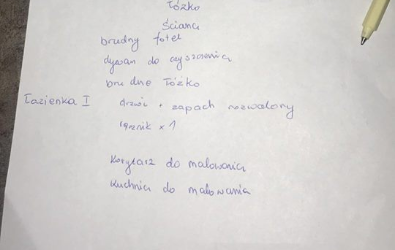 Łóżko
Ściana
brudny fotel
dywan do czyszczenia
brudne Łóżko
Łazienka I drzwi + zapach rozwalony
ręcznik x 1
Korytarz do malowania
Kuchnia do malowania